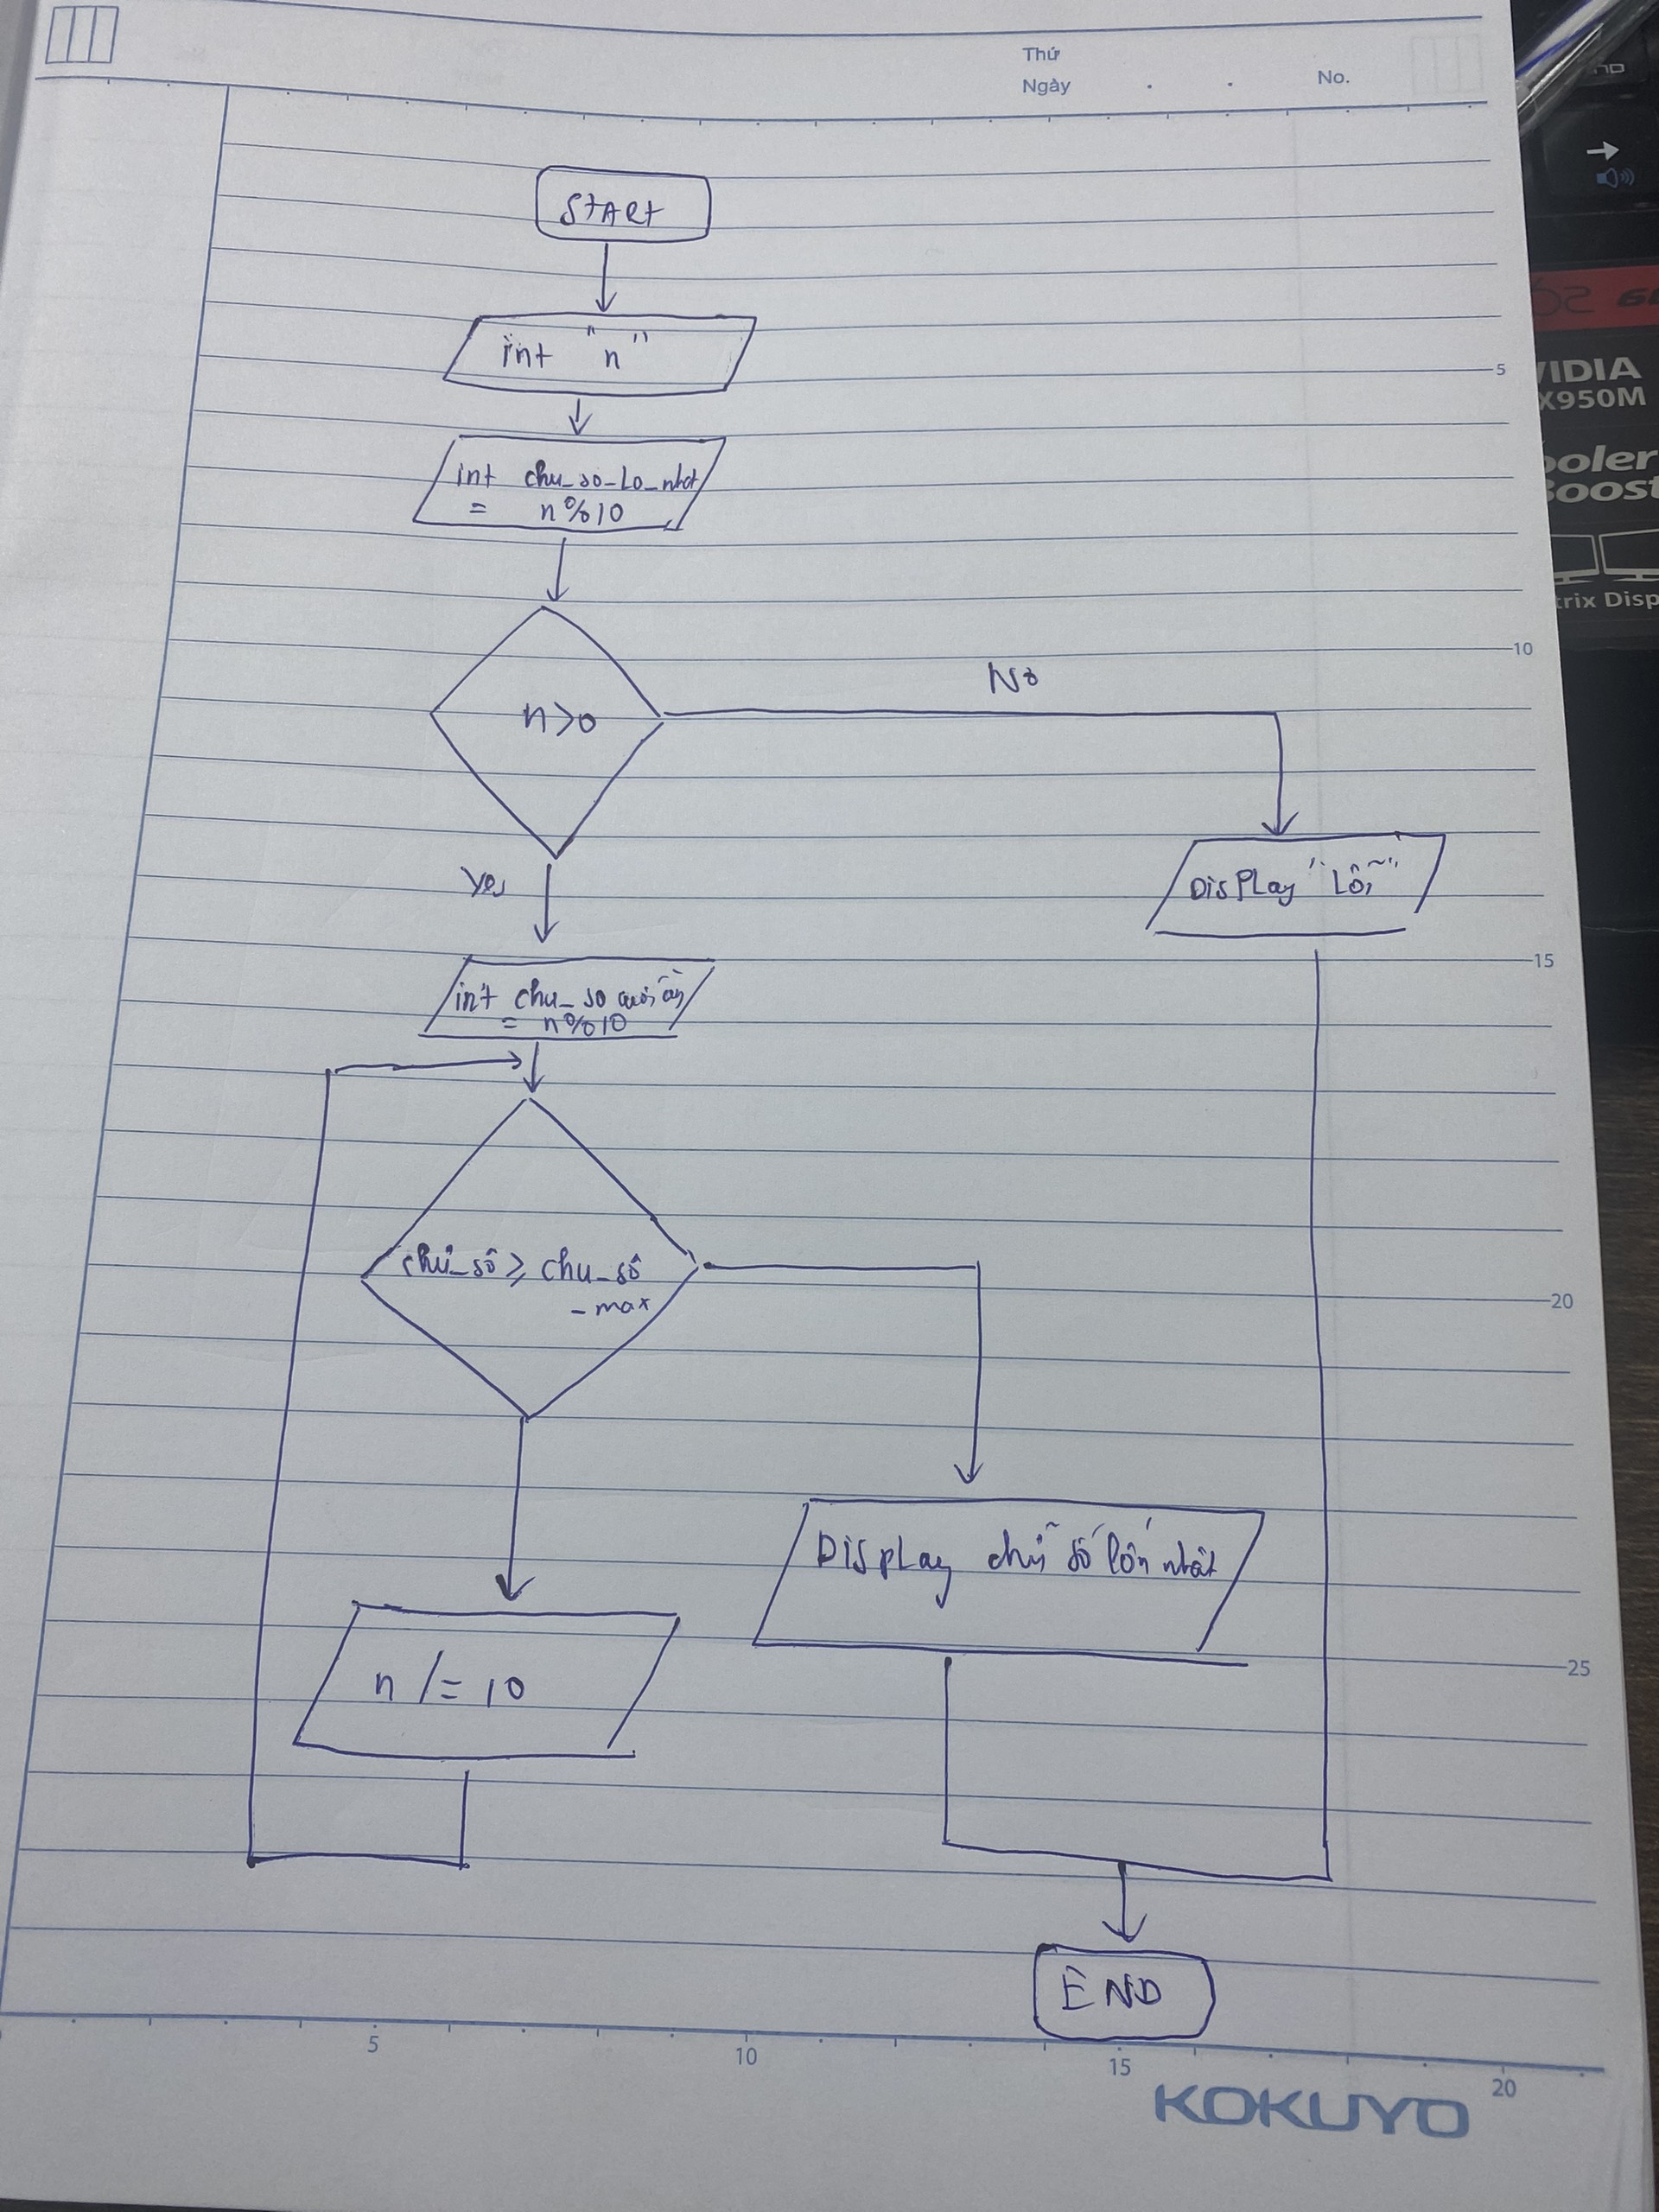 Thứ
Ngày . . No.
START
int "n"
int chu_so_Lo_nhat
= n%10
n>0
No
Yes
DisPLay "Lỗi"
int chu_so
= n%10
chữ_số ≥ chu_số
_max
DisPLay chữ số lớn nhất
n /= 10
END
5
10
15
20
25
5
10
15
20
KOKUYO
VIDIA
X950M
ooler
Boost
trix Disp